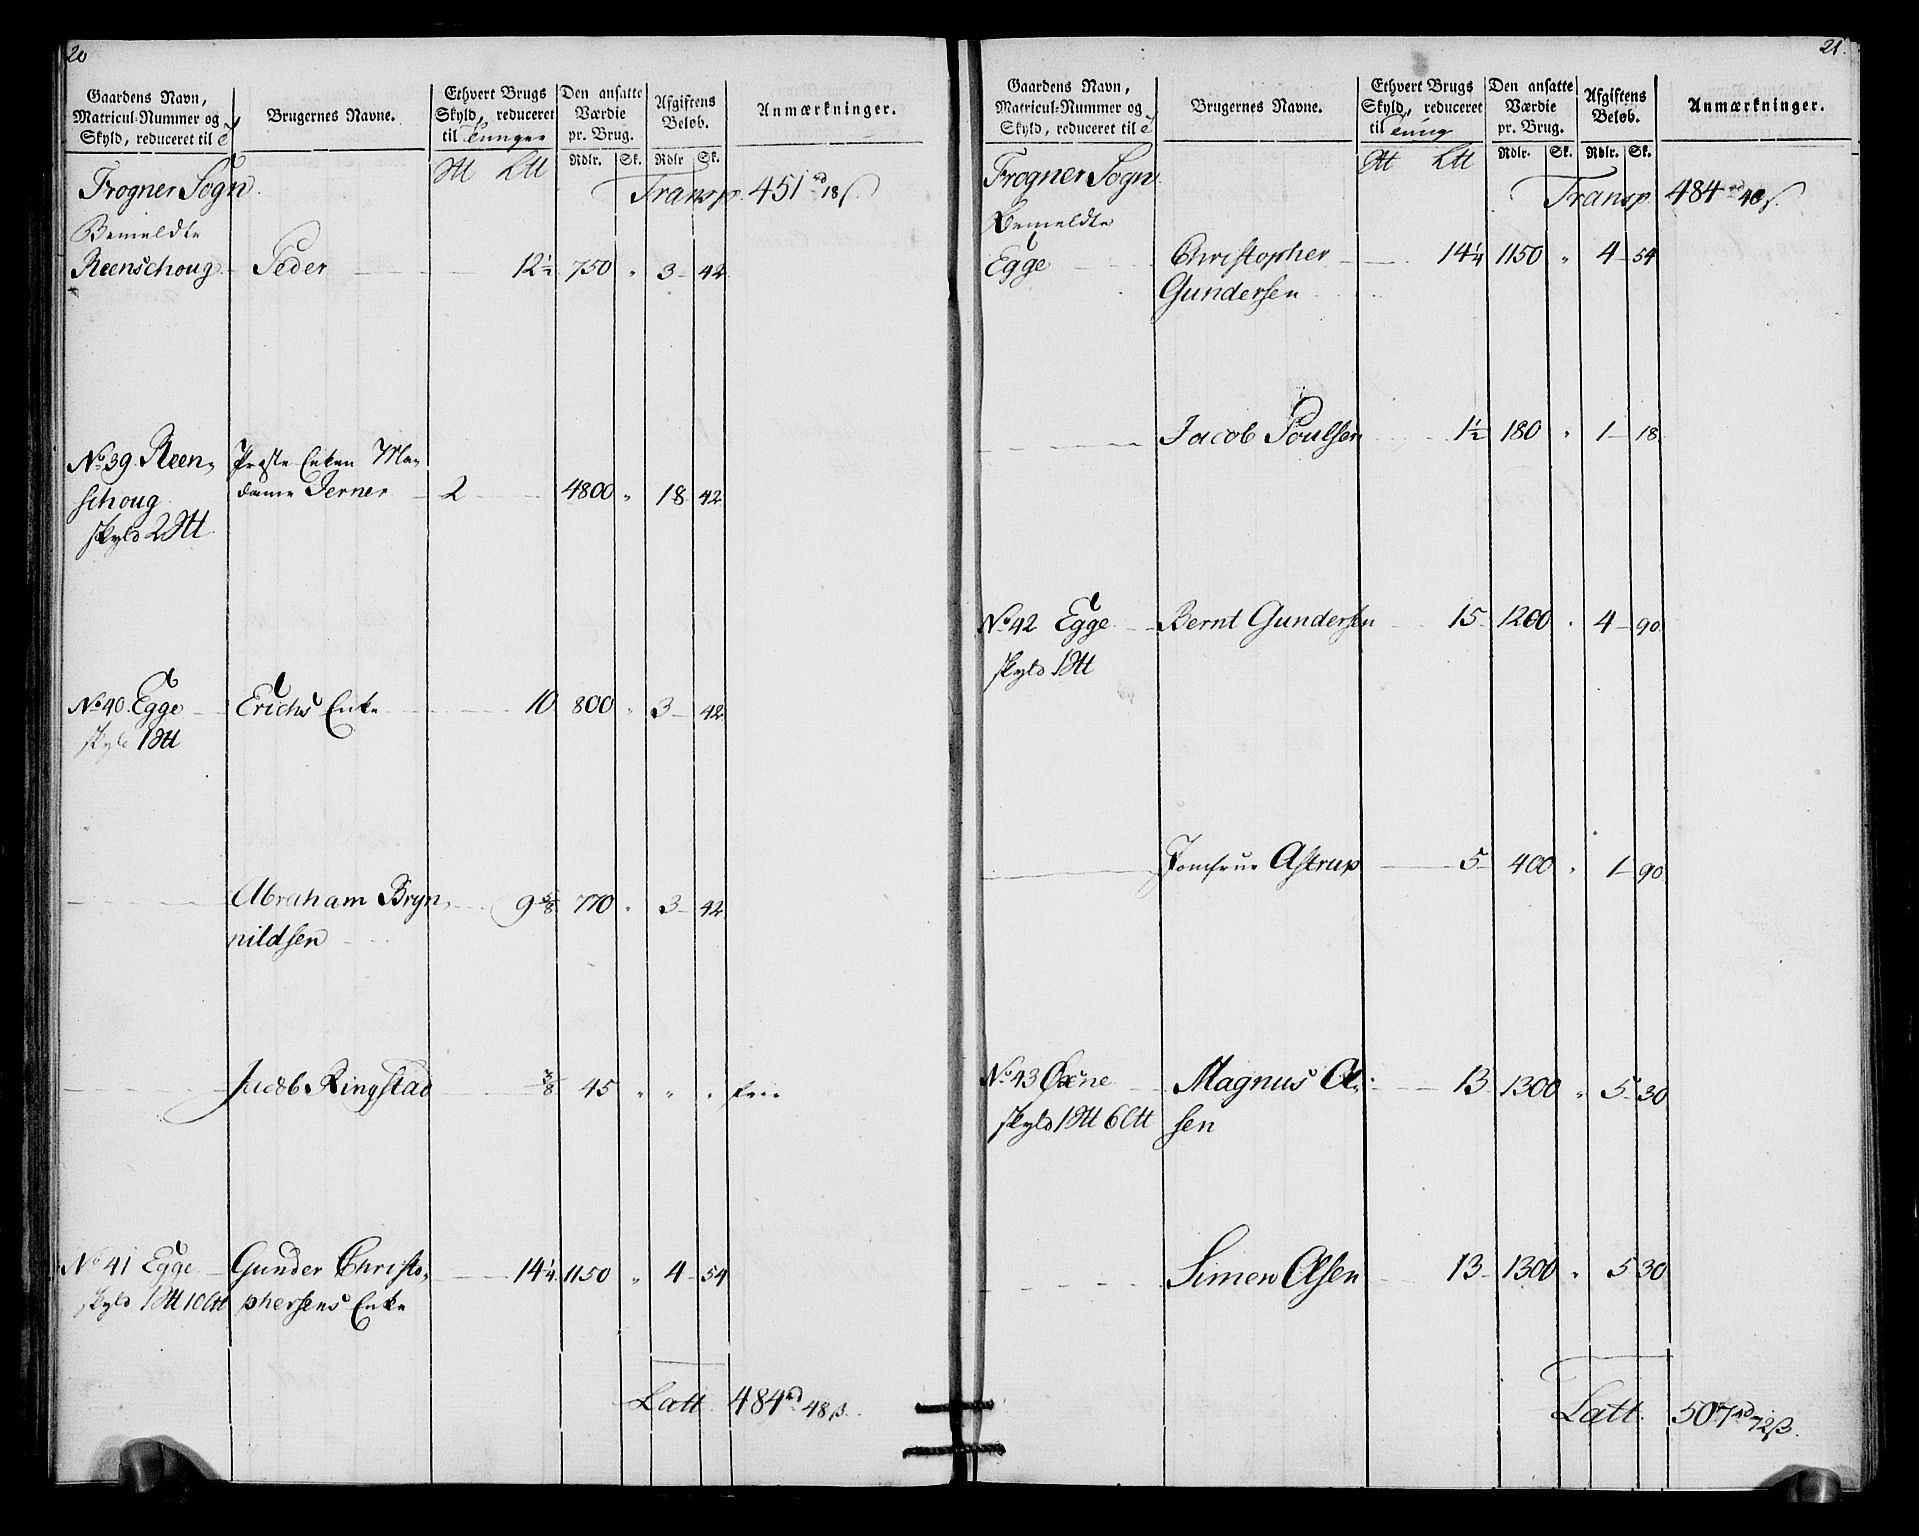 20
Gaardens Navn, Matricul-Nummer og Skyld, reduceret til
Brugernes Navne.
Ethvert Brugs Skyld, reduceret til Tunger
Den ansatte Værdie pr. Brug.
Afgiftens Beløb.
Anmærkninger.
Rdlr. Sk. Rdlr Sk.
Frogner Sogn Transp. 451 rd 18 ß
Bemeldte
Reenschoug Peder 12½ 750 " 3 42
No 39 Reen- Præste Enken Ma-
schoug dame Ferner 2 4800 " 18 42
skyld 2
No 40 Egge Erichs Enke 10 800 " 3 42
skyld 1
Abraham Bryn- 9⅝ 770 " 3 42
nildsen
Jacob Ringstad ⅜ 45 " " " frie
No 41 Egge Gunder Christo- 14¼ 1150 " 4 54
skyld 1 10 phersens Enke
Latt 484 rd 48 ß
21
Gaardens Navn, Matricul-Nummer og Skyld, reduceret til
Brugernes Navne.
Ethvert Brugs Skyld, reduceret til Tung
Den ansatte Værdie pr. Brug.
Afgiftens Beløb.
Anmærkninger.
Rdlr. Sk. Rdlr. Sk.
Frogner Sogn Transp 484 rd 48 ß
Bemeldte
Egge Christopher 14¼ 1150 " 4 54
Gundersen
Jacob Poulsen 1½ 180 " 1 18
No 42 Egge Bernt Gundersen 15 1200 " 4 90
skyld 1
Jomfrue Astrup 5 400 " 1 90
No 43 Øxne Magnus Ol- 13 1300 " 5 30
skyld 1 6 sen
Simen Olsen 13 1300 " 5 30
Latt 507 rd 72 ß